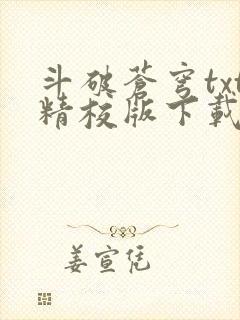 斗破苍穹txt
精校版下载
姜宣凭